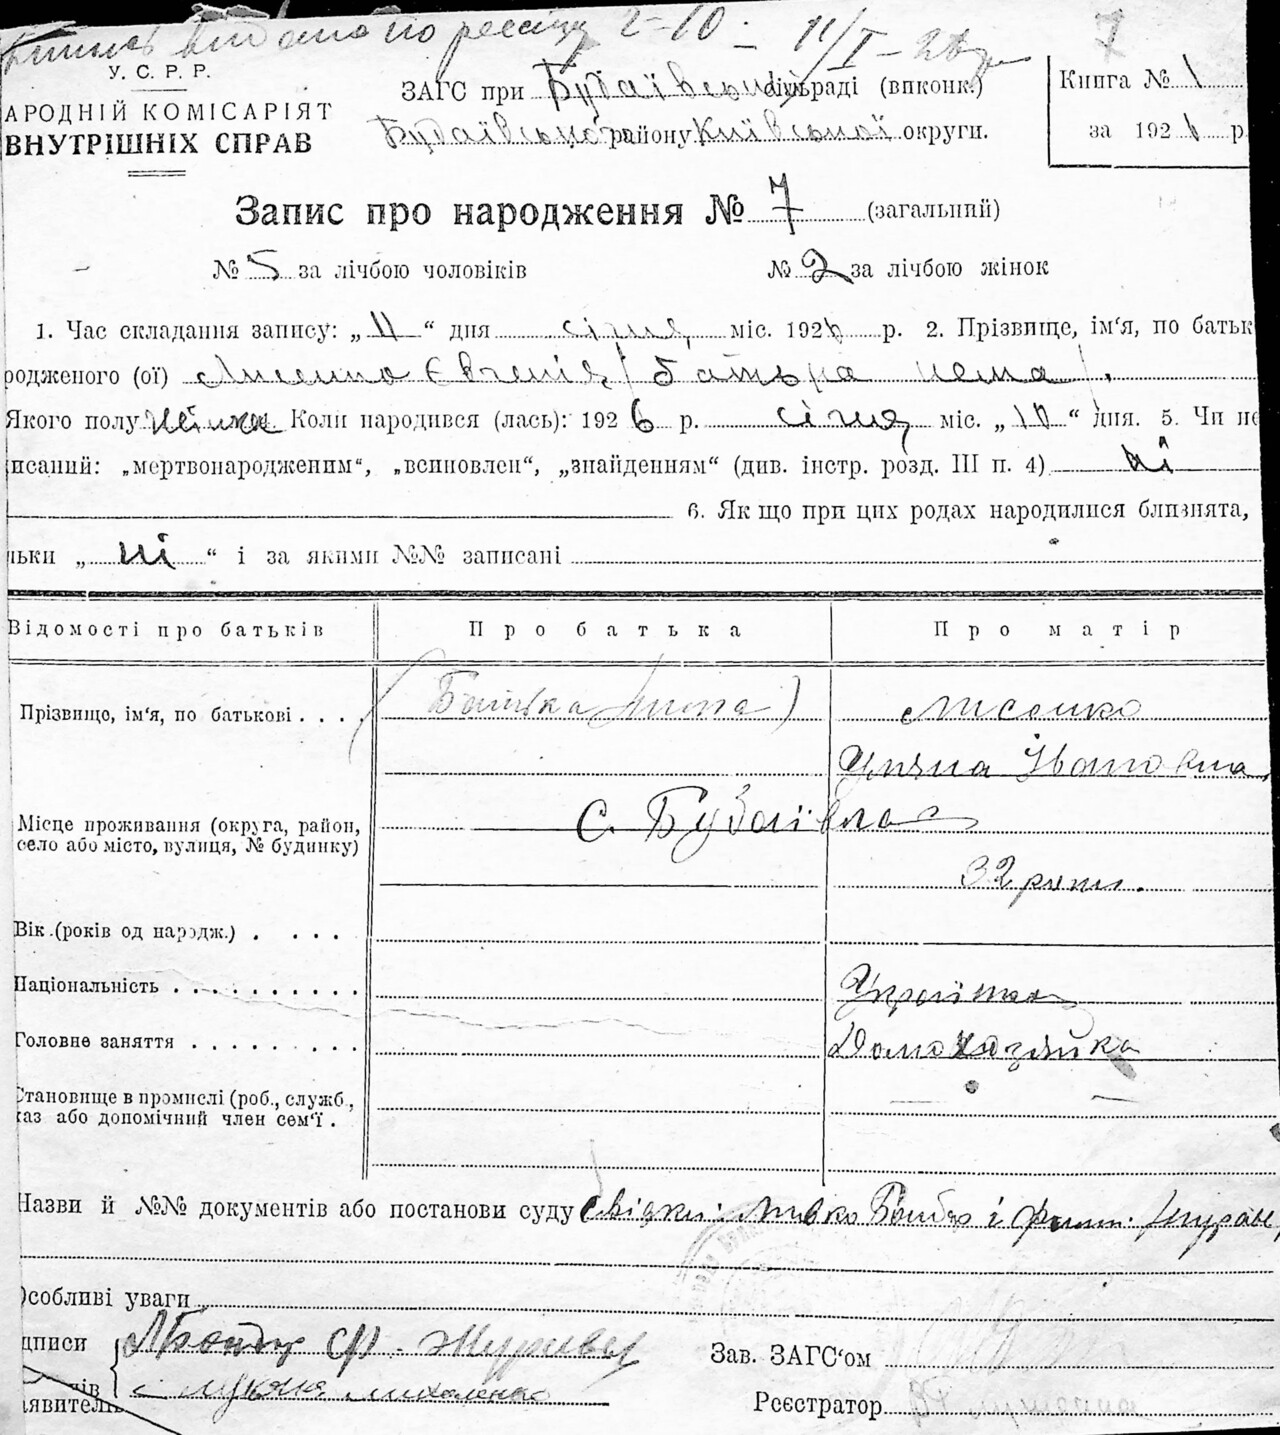 видано по реєстру 2-10 - 11/I-26 р
7
У. С. Р. Р.
АРОДНІЙ КОМІСАРІЯТ
ВНУТРІШНІХ СПРАВ
ЗАГС при Будаївській сільраді (впконк.)
Будаївського району Київської округи.
Книга № 1
за 1926 р
Запис про народження № 7 (загальний)
№ 5 за лічбою чоловіків № 2 за лічбою жінок
1. Час складання запису: „11“ дня січня міс. 1926 р. 2. Прізвище, ім‘я, по батьк
родженого (ої) Лисенко Євгенія (батька нема).
Якого полу жінка Коли народився (лась): 1926 р. січня міс. „10“ дня. 5. Чи не
писаний: „мертвонародженим“, „всиновлен“, „знайденням“ (див. інстр. розд. III п. 4) ні
6. Як що при цих родах народилися близнята,
льки „ні“ і за якими №№ записані
Відомості про батьків Про батька Про матір
Прізвищо, ім‘я, по батькові . . . . (Батька нима) Лисенко
Уляна Івановна
Місце проживання (округа, район, с. Будаївка
село або місто, вулиця, № будинку)
32 роки.
Вік (років од народж.) . . . .
Національність . . . . . . . . . . Українка
Головне заняття . . . . . . . . . Домохазяйка
Становище в промислі (роб., служб.,
каз або допомічний член сем‘ї .
Назви й №№ документів або постанови суду Свідки: Бондар і
Особливі уваги
дписи Бондар Ф. Журавель
Зав. ЗАГС‘ом
ків
аявителів
Реєстратор